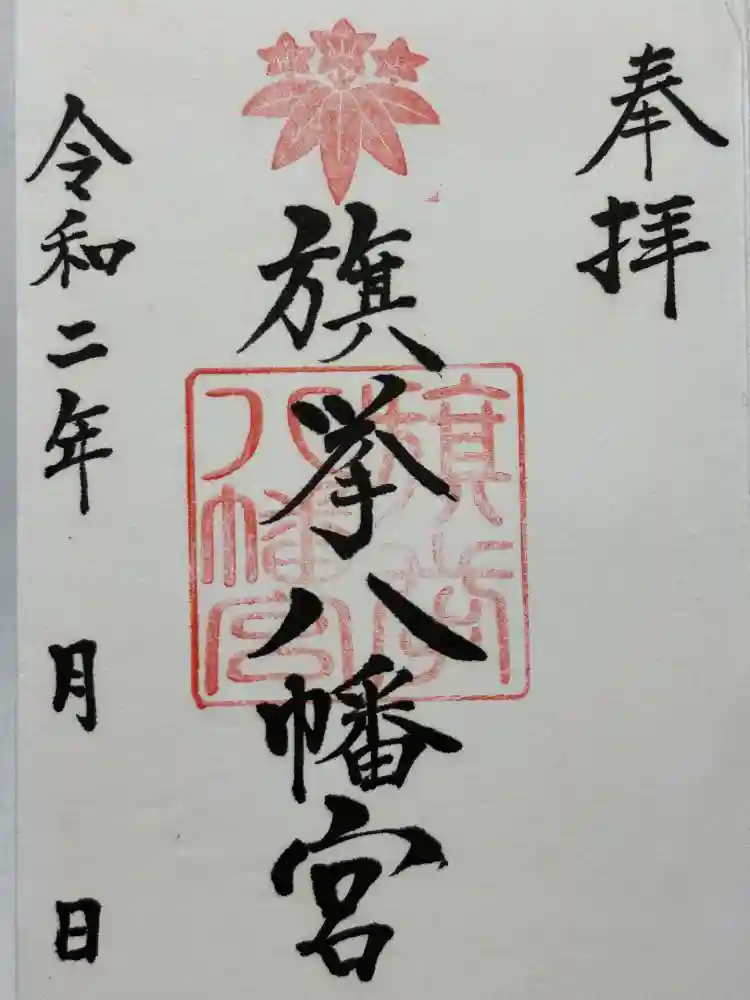 奉拝
旗挙八幡宮
旗挙
八幡宮
令和二年 月 日